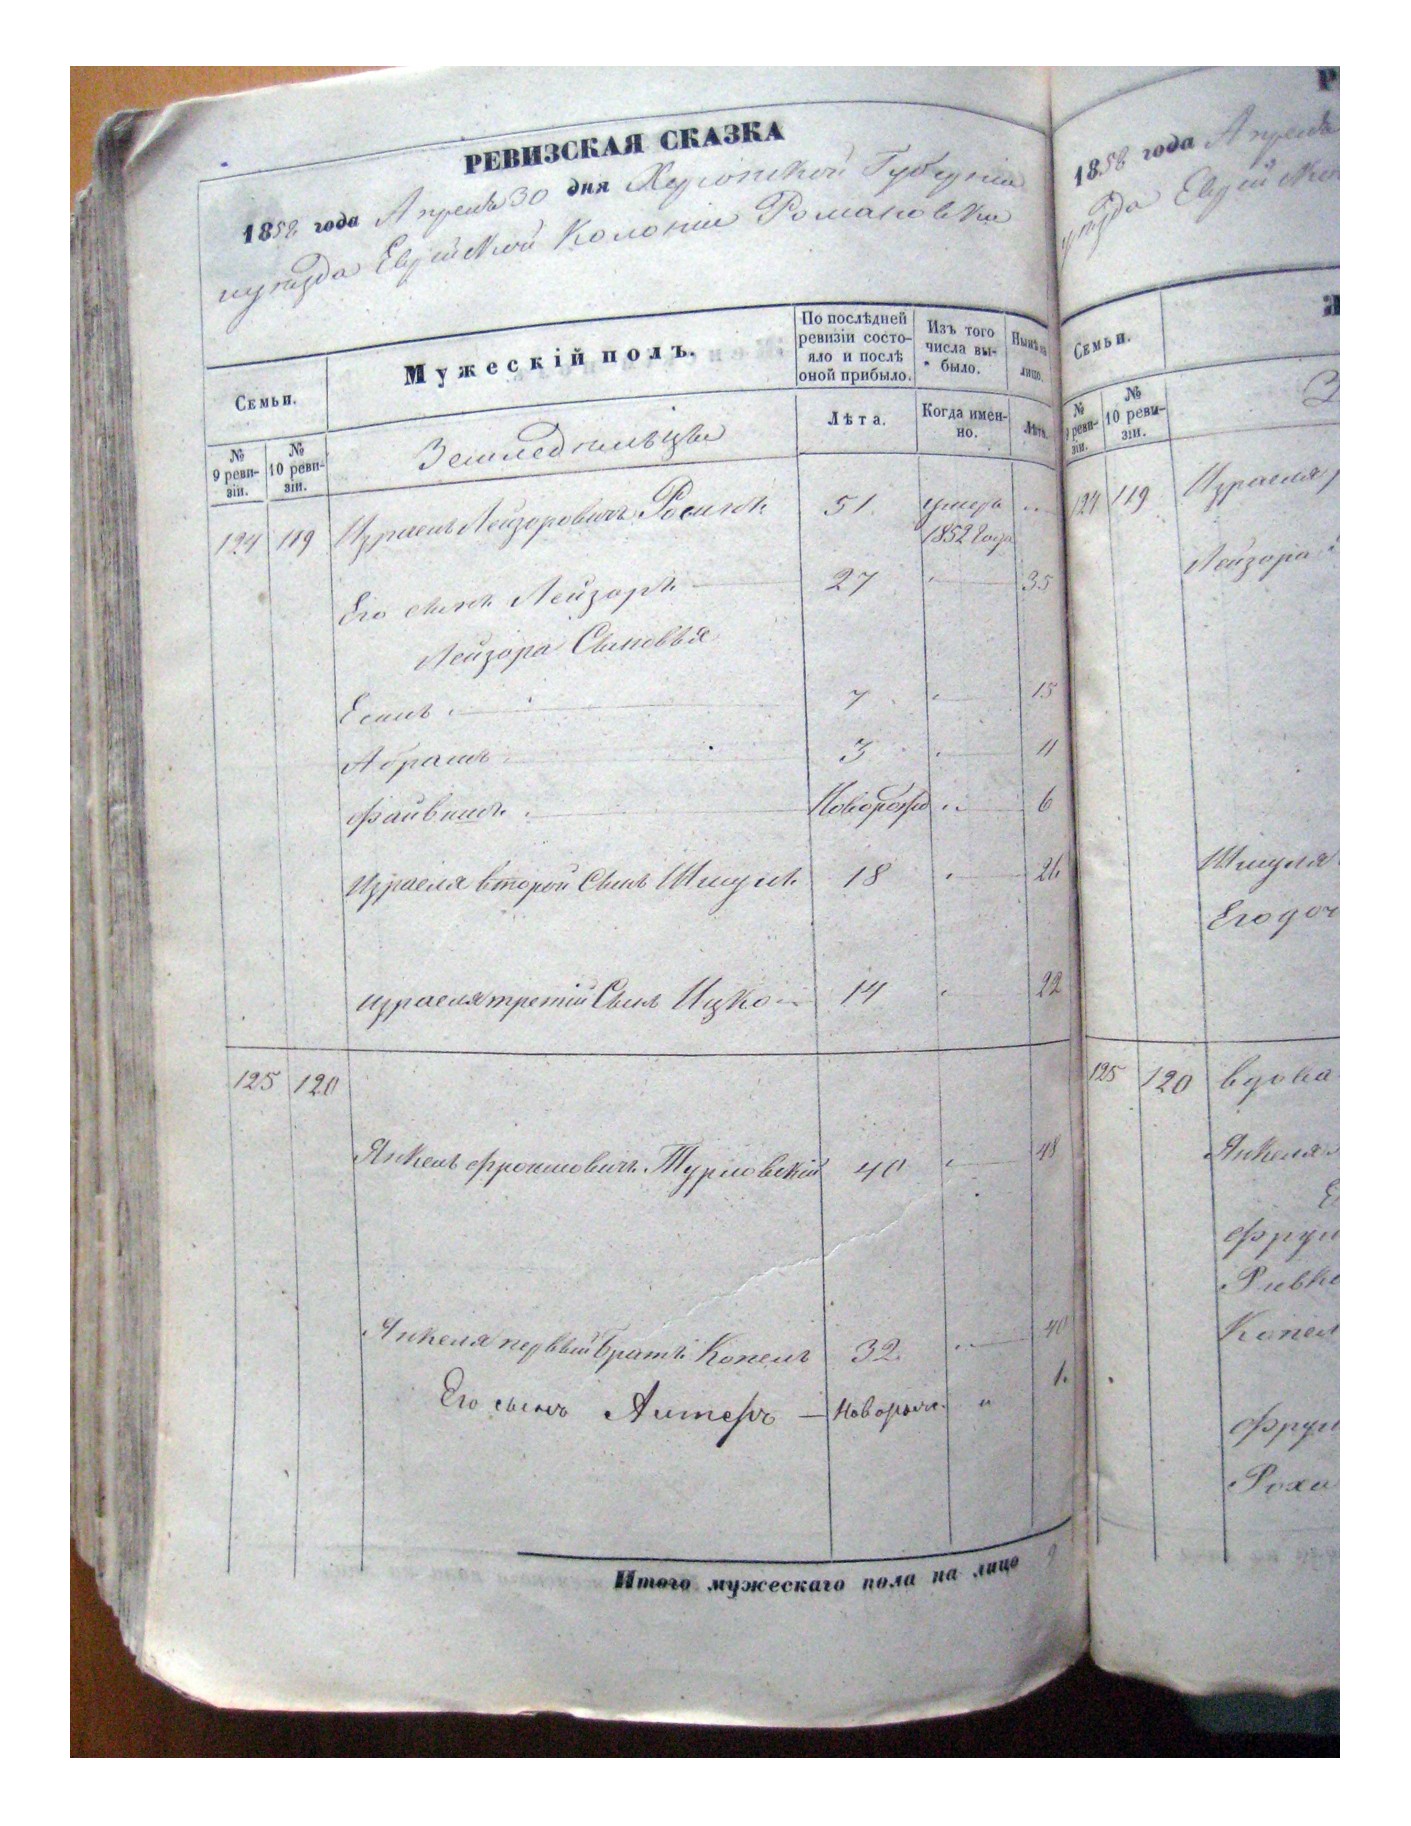 РЕВИЗСКАЯ СКАЗКА
1858 года Апреля 30 дня Херсонской Губернии
уезда Еврейской Колонии Романовки
Семьи.
Мужескій полъ.
По послѣдней ревизіи состояло и послѣ оной прибыло.
Изъ того числа выбыло.
Нынѣ на лицо.
№ 9 ревизіи.
№ 10 ревизіи.
Земледѣльцы
Лѣта.
Когда именно.
Лѣта.
124 119 Израель Лейзоровичъ 51 умеръ 1852 года ..
Его сынъ Лейзоръ 27 35
Лейзора Сыновья
7 15
Абрамъ 3 11
Файвишъ Новорожд 6
Израеля второй Сынъ Шмуль 18 26
Израеля третій Сынъ Ицко 14 22
125 120
Янкель Фроимовичъ Турловскій 40 48
Янкеля первый братъ Копель 32 40
Его сынъ Алтеръ — Новорожд. " 1.
Итого мужескаго пола на лицо 9
1858 года Апреля
уезда Еврейской
Семьи.
№ 9 ревизіи.
№ 10 ревизіи.
124 119 Израеля
Лейзора
Шмуля
Его доч
125 120 вдова
Янкеля
Фрум
Ривка
Копел
Фрум
Роха